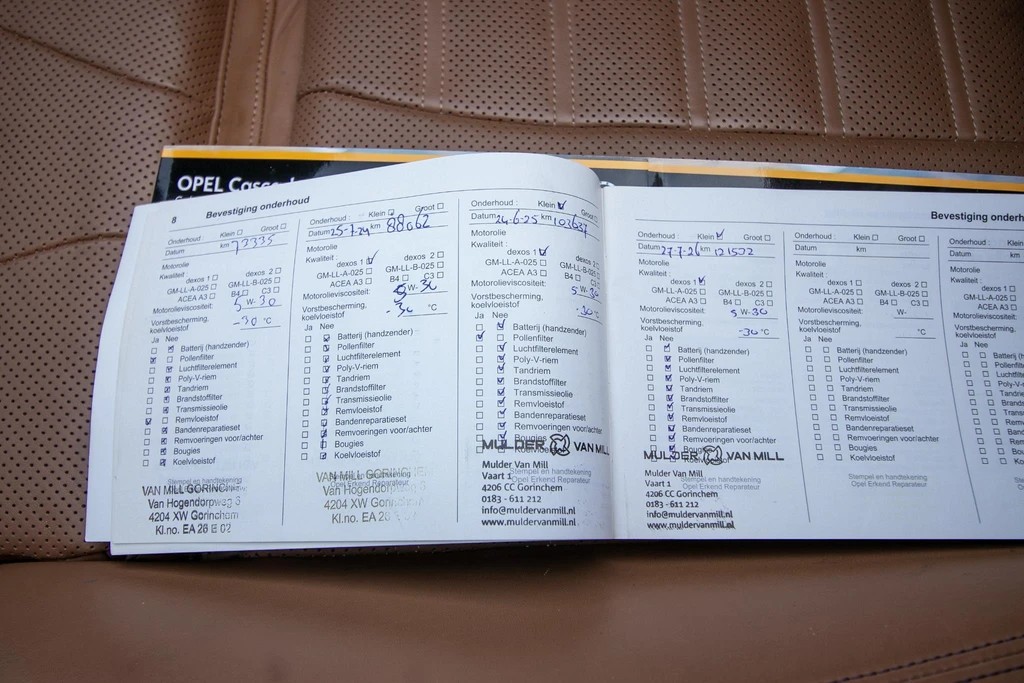 OPEL Casca
8 Bevestiging onderhoud
Onderhoud : Klein Groot
Datum km 73335
Motorolie
Kwaliteit : dexos 1 dexos 2
GM-LL-A-025 GM-LL-B-025
ACEA A3 B4 C3
Motorolieviscositeit: 5 W-30
Vorstbescherming,
koelvloeistof -30 °C
Ja Nee
Batterij (handzender)
Pollenfilter
Luchtfilterelement
Poly-V-riem
Tandriem
Brandstoffilter
Transmissieolie
Remvloeistof
Bandenreparatieset
Remvoeringen voor/achter
Bougies
Koelvloeistof
Stempel en handtekening
VAN MILL GORINCHEM
Van Hogendorpweg 6
4204 XW Gorinchem
Kl.no. EA 26 E 02
Onderhoud : Klein Groot
Datum 25-7-24 km 88062
Motorolie
Kwaliteit : dexos 1 dexos 2
GM-LL-A-025 GM-LL-B-025
ACEA A3 B4 C3
Motorolieviscositeit: 5 W-30
Vorstbescherming,
koelvloeistof -30 °C
Ja Nee
Batterij (handzender)
Pollenfilter
Luchtfilterelement
Poly-V-riem
Tandriem
Brandstoffilter
Transmissieolie
Remvloeistof
Bandenreparatieset
Remvoeringen voor/achter
Bougies
Koelvloeistof
VAN MILL GORINCHE
Opel Erkend Reparateur
Van Hogendorpweg
4204 XW Gorinchem
Kl.no. EA 26 E 02
Onderhoud : Klein Groot
Datum 24-6-25 km 103637
Motorolie
Kwaliteit : dexos 1 dexos 2
GM-LL-A-025 GM-LL-B-025
ACEA A3 B4 C3
Motorolieviscositeit: 5 W-30
Vorstbescherming,
koelvloeistof -30 °C
Ja Nee
Batterij (handzender)
Pollenfilter
Luchtfilterelement
Poly-V-riem
Tandriem
Brandstoffilter
Transmissieolie
Remvloeistof
Bandenreparatieset
Remvoeringen voor/achter
Bougies
Koelvloeistof
MULDER VAN MILL
Mulder Van Mill
Stempel en handtekening
Vaart 1
Opel Erkend Reparateur
4206 CC Gorinchem
0183 - 611 212
info@muldervanmill.nl
www.muldervanmill.nl
Bevestiging onderhou
Onderhoud : Klein Groot
Datum 27-7-26 km 121502
Motorolie
Kwaliteit : dexos 1 dexos 2
GM-LL-A-025 GM-LL-B-025
ACEA A3 B4 C3
Motorolieviscositeit: 5 W-30
Vorstbescherming,
koelvloeistof -30 °C
Ja Nee
Batterij (handzender)
Pollenfilter
Luchtfilterelement
Poly-V-riem
Tandriem
Brandstoffilter
Transmissieolie
Remvloeistof
Bandenreparatieset
Remvoeringen voor/achter
Bougies
Koelvloeistof
MULDER VAN MILL
Mulder Van Mill
Stempel en handtekening
Vaart 1
Opel Erkend Reparateur
4206 CC Gorinchem
0183 - 611 212
info@muldervanmill.nl
www.muldervanmill.nl
Onderhoud : Klein Groot
Datum km
Motorolie
Kwaliteit : dexos 1 dexos 2
GM-LL-A-025 GM-LL-B-025
ACEA A3 B4 C3
Motorolieviscositeit: W-
Vorstbescherming,
koelvloeistof °C
Ja Nee
Batterij (handzender)
Pollenfilter
Luchtfilterelement
Poly-V-riem
Tandriem
Brandstoffilter
Transmissieolie
Remvloeistof
Bandenreparatieset
Remvoeringen voor/achter
Bougies
Koelvloeistof
Stempel en handtekening
Opel Erkend Reparateur
Onderhoud : Klein
Datum km
Motorolie
Kwaliteit : dexos 1
GM-LL-A-025
ACEA A3
Motorolieviscositeit:
Vorstbescherming,
koelvloeistof
Ja Nee
Batterij (ha
Pollenfilter
Luchtfilterele
Poly-V-riem
Tandriem
Brandstof
Transmiss
Remvloeis
Bandenre
Remvoerin
Bougies
Koelvloeis